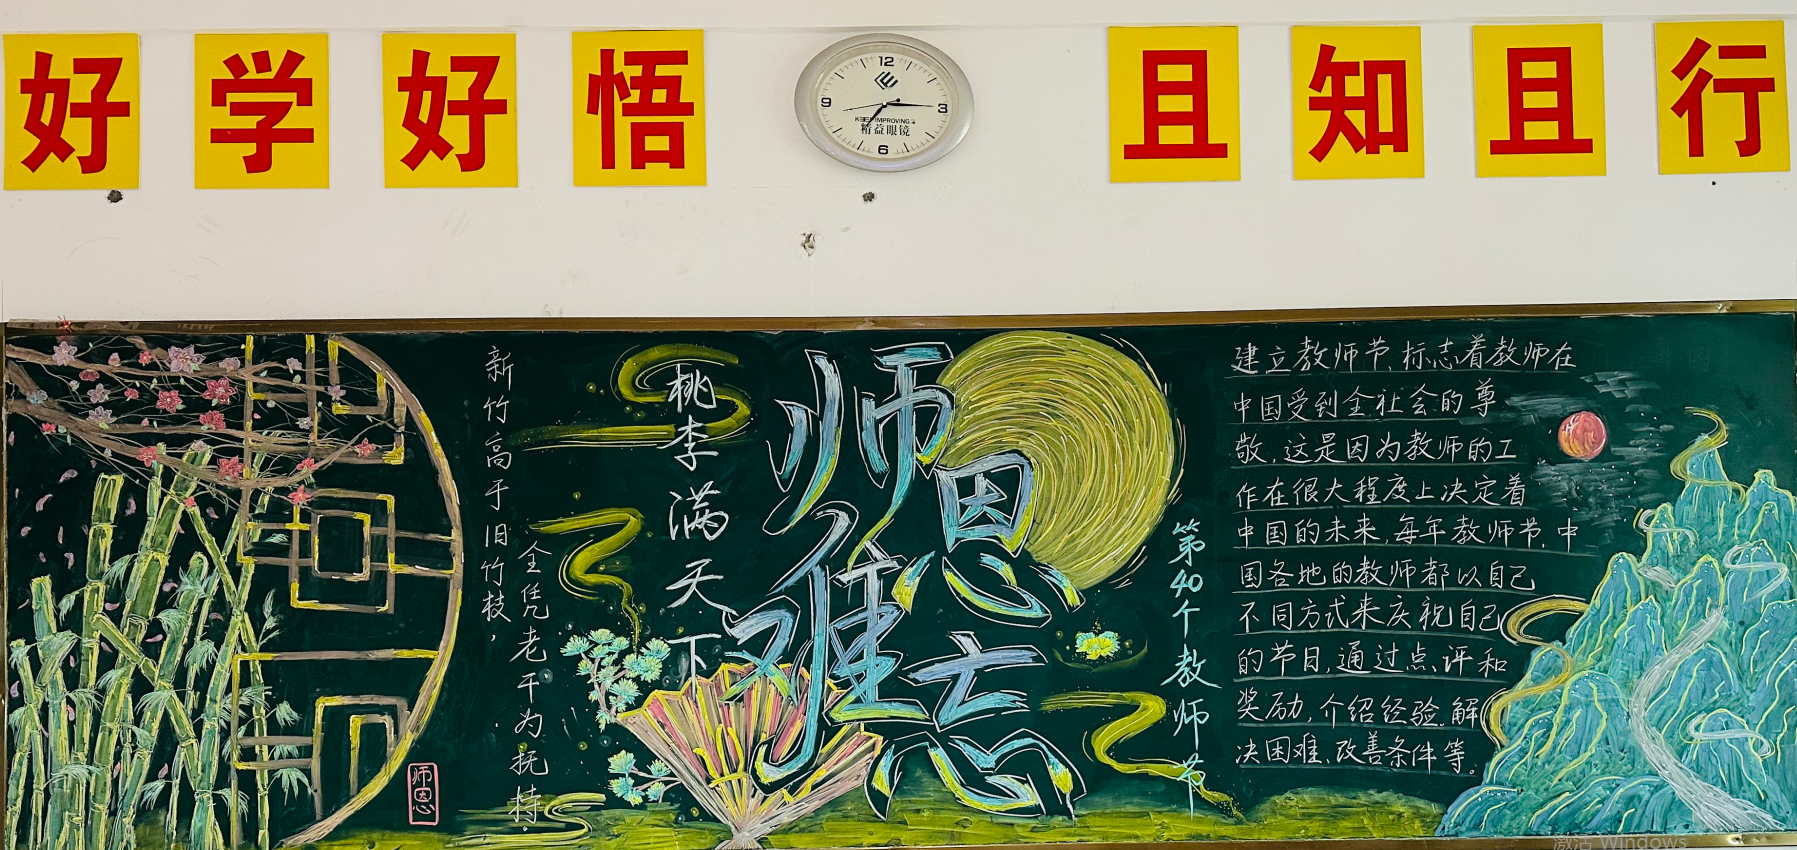 好学好悟
且知且行
12
3
6
9
KEEP IMPROVING
精益眼镜
新竹高于旧竹枝，
全凭老干为扶持.
师恩
桃李满天下
师恩
难忘
第40个教师节
建立教师节,标志着教师在
中国受到全社会的尊
敬,这是因为教师的工
作在很大程度上决定着
中国的未来,每年教师节,中
国各地的教师都以自己
不同方式来庆祝自己
的节目,通过点评和
奖励,介绍经验.解
决困难、改善条件等。
激活 Windows